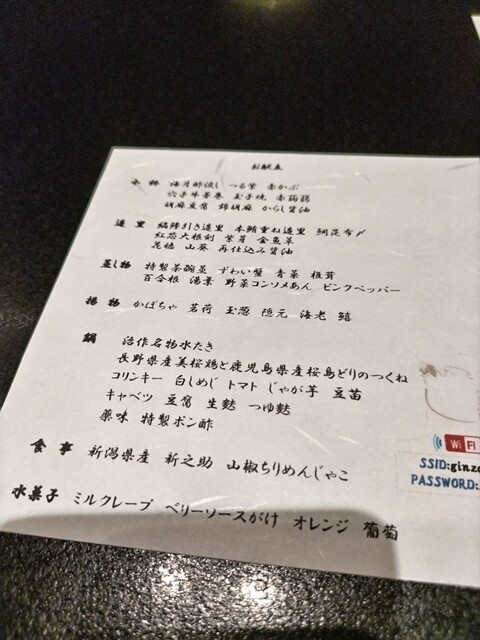 お献立
小鉢 海月酢浸し つる紫 赤かぶ
穴子牛蒡巻 玉子焼 赤蒟蒻
胡麻豆腐 錦胡麻 からし醤油
造里 縞鯵引き造里 本鮪重ね造里 鯛昆布〆
紅芯大根剣 紫芽 金魚草
花穂 山葵 再仕込み醤油
蒸し物 特製茶碗蒸 ずわい蟹 青菜 椎茸
百合根 湯葉 野菜コンソメあん ピンクペッパー
揚物 かぼちゃ 茗荷 玉葱 隠元 海老
鍋 治作名物水たき
長野県産美桜鶏と鹿児島県産桜島どりのつくね
コリンキー 白しめじ トマト じゃが芋 豆苗
キャベツ 豆腐 生麩 つゆ麩
薬味 特製ポン酢
食事 新潟県産 新之助 山椒ちりめんじゃこ
水菓子 ミルクレープ ベリーソースがけ オレンジ 葡萄
WiFi
SSID:ginz
PASSWORD: